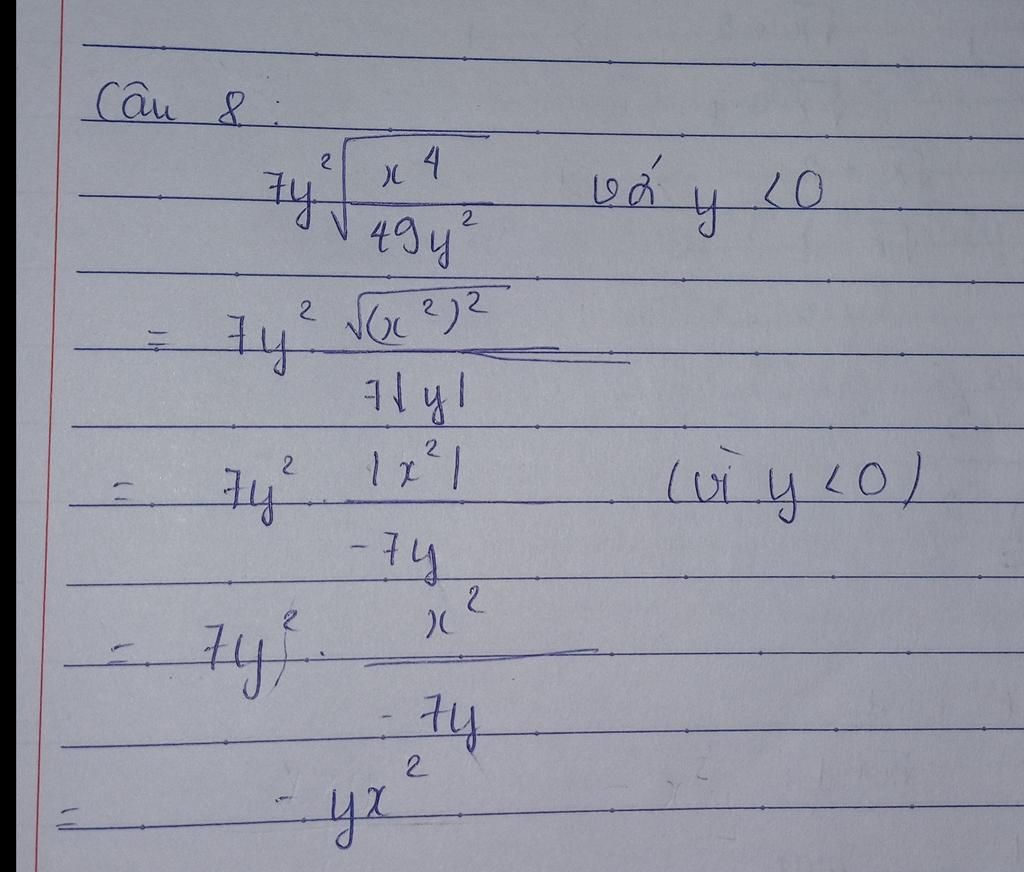 Câu 8:
7y²√(x⁴/49y²) với y <0
= 7y² √(x²)²/7|y|
= 7y² · |x²|/-7y (vì y <0)
= 7y² · x²/-7y
= - yx²